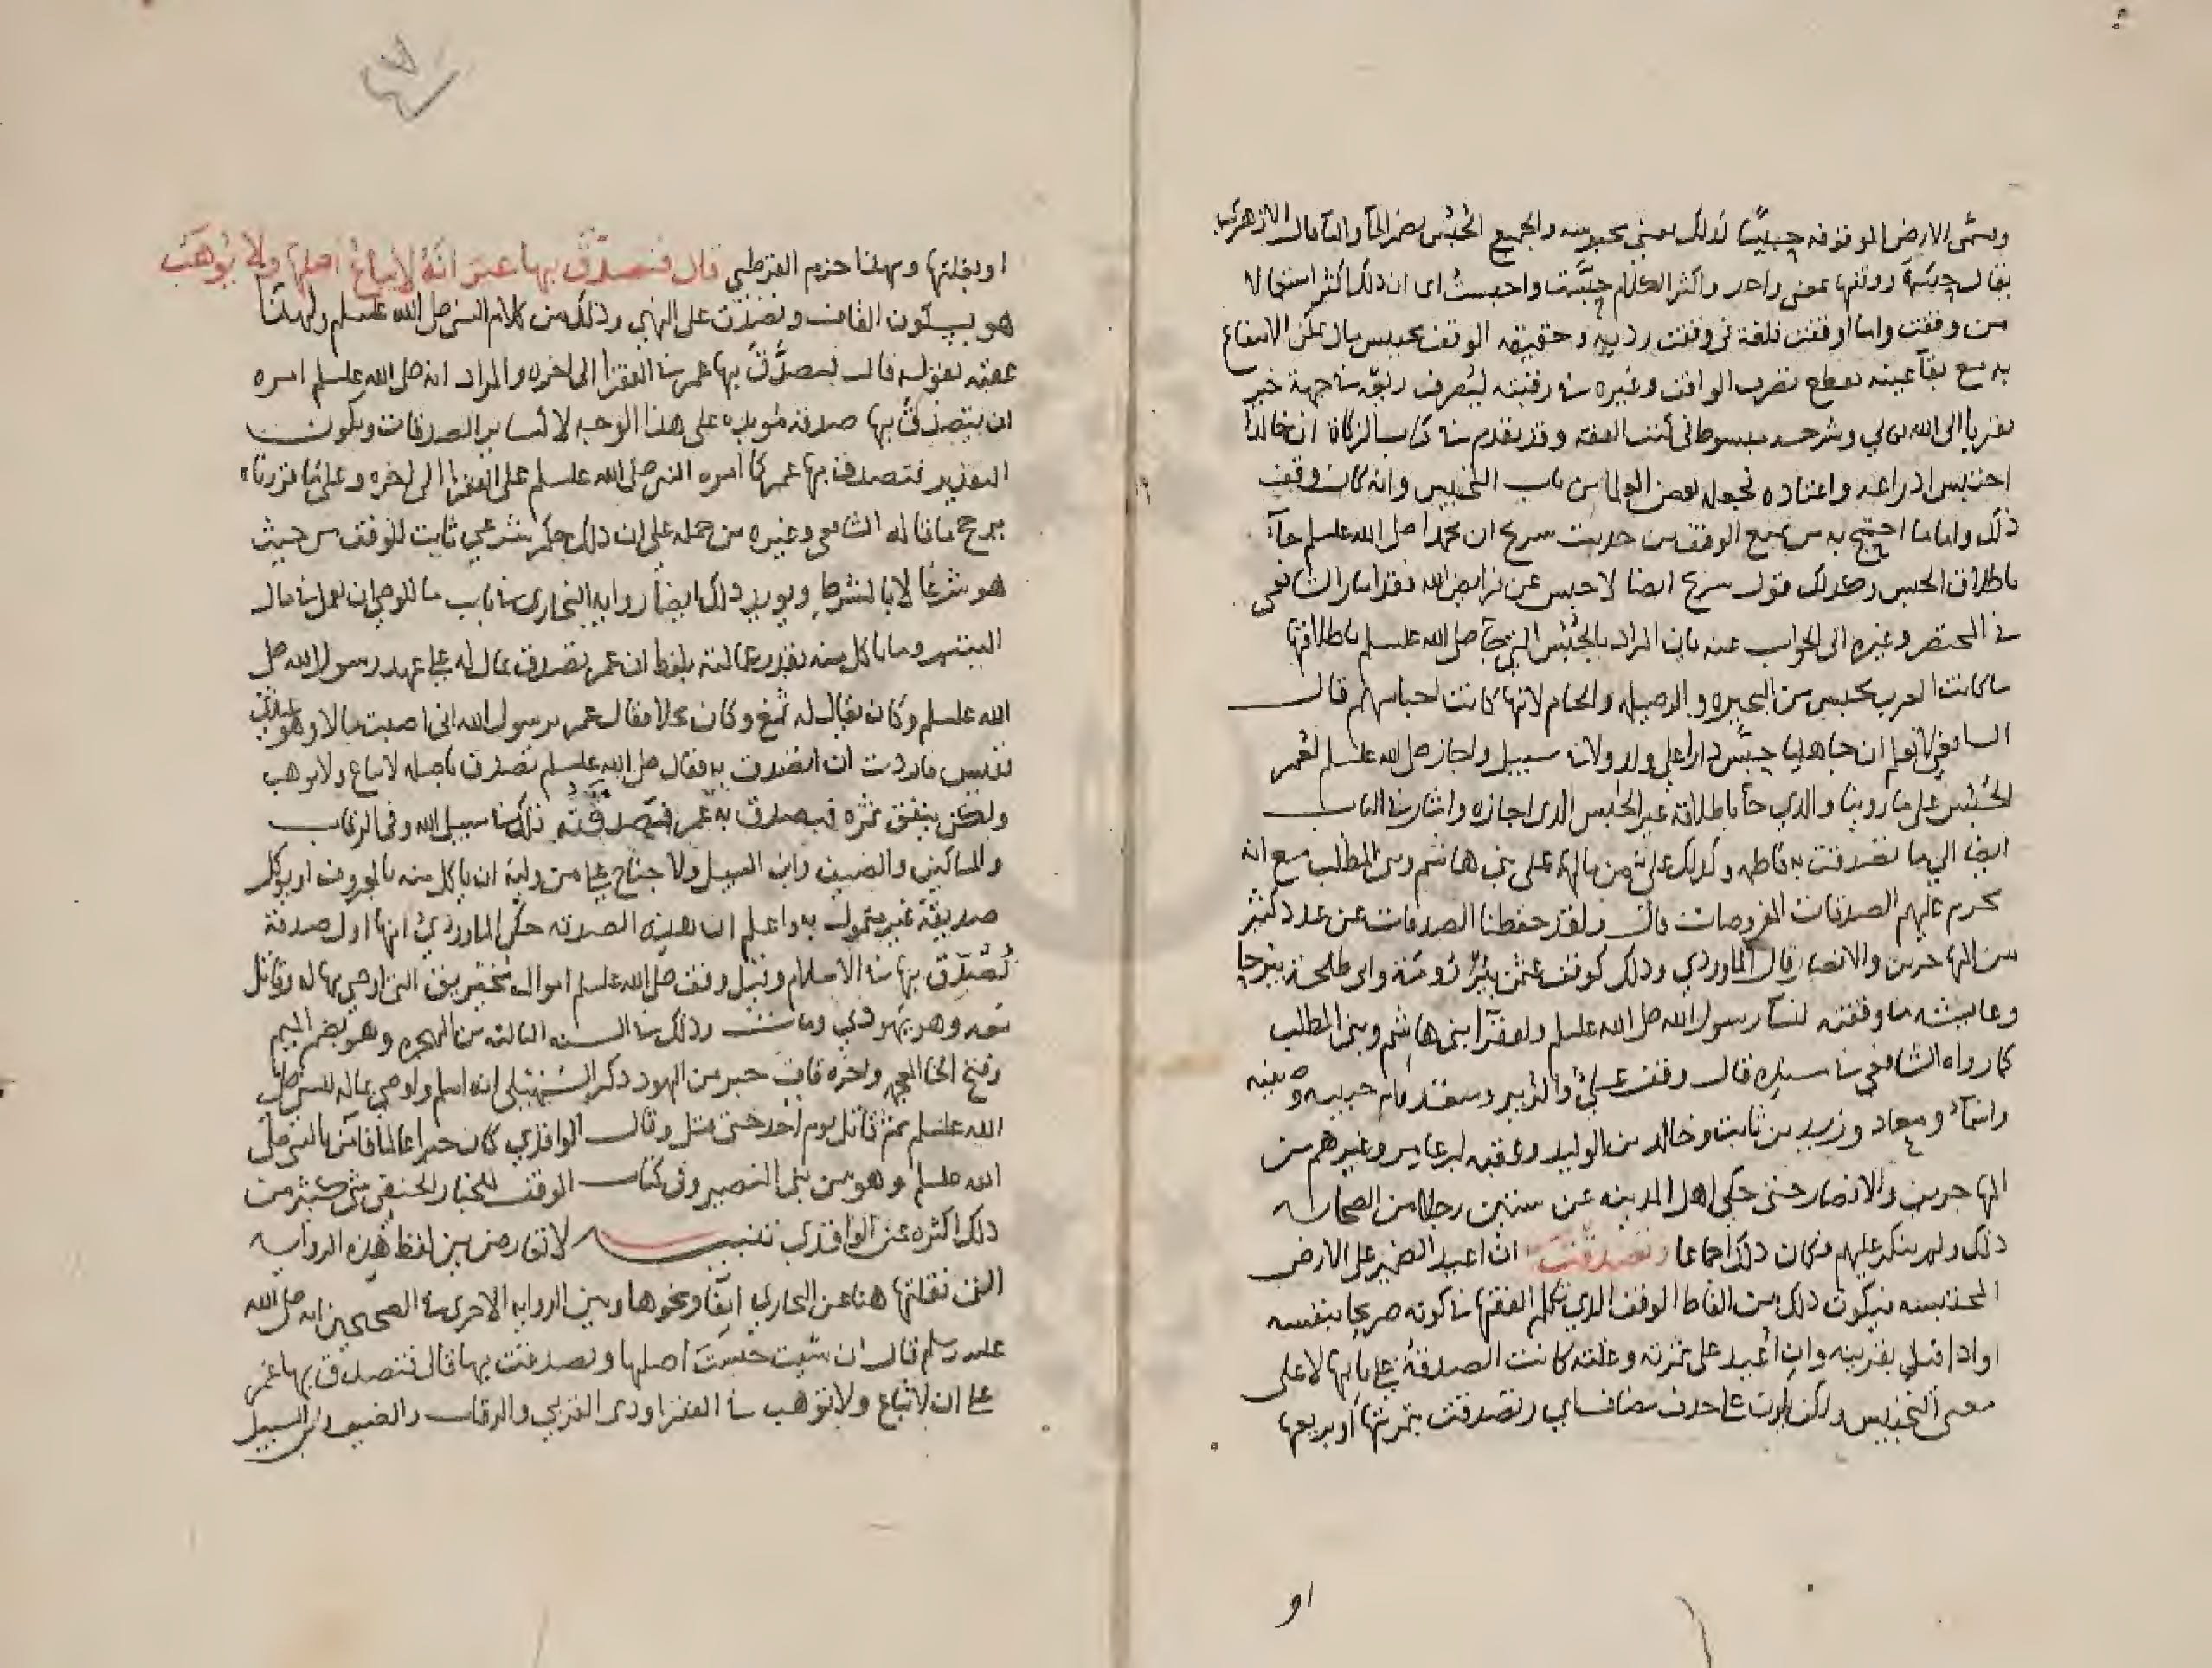 ويسمى الارض الموقوفه حبيسًا لذلك بمعنى محبوسه والجمع الحُبُس بضم الحآ والبآ قال الازهري
يقال حبستُه ووقفتها بمعنى واحد واكثر الكلام حبَّست واحبست اى ان ذلك اكثر استعمالا
من وقفت واما اوقفت فلغة فى وقفت رديه وحقيقه الوقف تحبيس مال يمكن الانتفاع
به مع بقآ عينه بقطع تصرف الواقف وغيره في رقبته ليصرف ريعه في جهة خير
تقربا الى الله تعالي وشرحه مبسوط فى كتب الفقه وقد تقدم في كتاب الزكاة ان خالدا
احتبس ادراعه واعتاده فجعله بعض العلما من باب التحبيس وانه كان وقف
ذلك واما ما احتج به من منع الوقف من حديث سريح ان محمدا صلى الله عليه وسلم جآ
باطلاق الحبس وكذلك قول سريح ايضا لا حبس عن فرايض الله فقد اشار الشافعى
في المختصر وغيره الى الجواب عنه بان المراد بالحُبُس التى جآ صلى الله عليه وسلم باطلاقها
ما كانت العرب تحبس من البحيره والوصيله والحام لانها كانت احباسهم قال
الشافعي لا نعلم ان جاهليا حبَّس دارا على ولد ولا في سبيل واجاز صلى الله عليه وسلم لعمر
الحُبُس على ما روينا والذي جآ باطلاقه غير الحبس الذى اجازه واشار في الباب
ايضا الي ما تصدقت به فاطمه وكذلك على من مالهم على بنى هاشم وبنى المطلب مع انه
يحرم عليهم الصدقات المفروضات قال ولقد حفظنا الصدقات عن عدد كثير
من المهاجرين والانصار قال الماوردي وذلك كوقف عثمن بئر رُومَة وابى طلحة بيرحا
وعايشه ما وقفته لنسآ رسول الله صلى الله عليه وسلم ولفقرآ بنى هاشم وبنى المطلب
كما رواه الشافعي في سيره قال وقف على والزبير وسعد وام حبيبه وصفيه
واسمآ ومعاد وزيد بن ثابت وخالد بن الوليد وعقبه بن عامر وغيرهم من
المهاجرين والانصار حتى حكي اهل المدينه عن ستين رجلا من الصحابه
ذلك ولم ينكر عليهم فكان ذلك اجماعا وتصدقت ان اعيد الضمير على الارض
المحتبسه فيكون ذلك من الفاظ الوقف الذي تكلم الفقها في كونه صريحا بنفسه
او اذا قيل بقرينه وان اعيد على ثمرته وغلته كانت الصدقة على بابها لا على
معنى التحبيس ولكن يكون على حدف مضاف اي وتصدقت بثمرتها او بريعها
او
او بغلتها وبهذا جزم القرطبي قال فتصدّق بها عمر انهُ لا يباعُ اصلها ولا يُوهَب
هو بسكون القاف وتصدق على النهي وذلك من كلام النبى صلى الله عليه وسلم ولهذا
عقبه بقوله قال فتصدَّق بها عمر في الفقرا الى اخره والمراد انه صلى الله عليه وسلم امره
ان يتصدق بها صدقه مؤبده على هذا الوجه لا كساير الصدقات ويكون
التقدير فتصدق بها عمر كما امره النبى صلى الله عليه وسلم على الفقرا الى اخره وعلى ما قررناه
يرجح ما قاله الشافعى وغيره من حمله على ان ذلك حكم شرعي ثابت للوقف من حيث
هو شرعا لا بالشرط ويويد ذلك ايضا روايه البخارى في باب ما للوصى ان يعمل في مال
اليتيم وما ياكل منه بقدر عمالته بلفظ ان عمر تصدق بمال له على عهد رسول الله صلى
الله عليه وسلم وكان يقال له ثمغ وكان نخلا فقال عمر يرسول الله انى اصبت مالا وهو عندى
نفيس فاردت ان اتصدق به فقال صلى الله عليه وسلم تصدق باصله لا يباع ولا يوهب
ولكن ينفق ثمره فتصدق به عمر فصدقته تلك في سبيل الله وفى الرقاب
والمساكين والضيف وابن السبيل ولا جناح على من وليه ان ياكل منه بالمعروف او يوكل
صديقه غير متمول به واعلم ان هذه الصدقه حكى الماوردي انها اول صدقة
تُصُدّق بها في الاسلام وقيل وقف صلى الله عليه وسلم اموال مخيريق التى اوصى بها له وقاتل
معه وهو يهودي ومات وذلك في السنه الثالثه من الهجره وهو بضم الميم
وفتح الخا المعجمه واخره قاف حبر من اليهود ذكر السهيلى انه اسلم واوصى بماله للنبى صلى
الله عليه وسلم ثم قاتل يوم اُحد حتى قتل وقال الواقدي كان حبرا عالما فامن بالنبى صلى
الله عليه وسلم وهو من بنى النضير وفى كتاب الوقف للخصاف الحنفى شى كثير من
ذلك اكثره عن الواقدي تنبيه لا تعارض بين لفظ هذه الروايه
التى نقلتها هنا عن البخاري آنفا ونحوها وبين الروايه الاخرى في الصحيحين انه صلى الله
عليه وسلم قال ان شيت حبستَ اصلها وتصدقت بها قال فتصدق بها عمر
على ان لا تباع ولا توهب في الفقرا وذى القربى والرقاب والضيف وابن السبيل